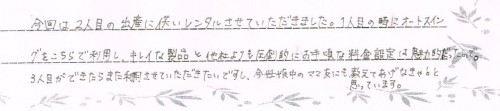 今回は2人目の出産に伴いレンタルさせていただきました。1人目の時にオートスイン
グをこちらで利用し、キレイな製品と他社よりも圧倒的にお手頃な料金設定は魅力的だったので。
3人目ができたらまた利用させていただきたいですし、今妊娠中のママ友にも教えてあげなきゃ!と
思っています。